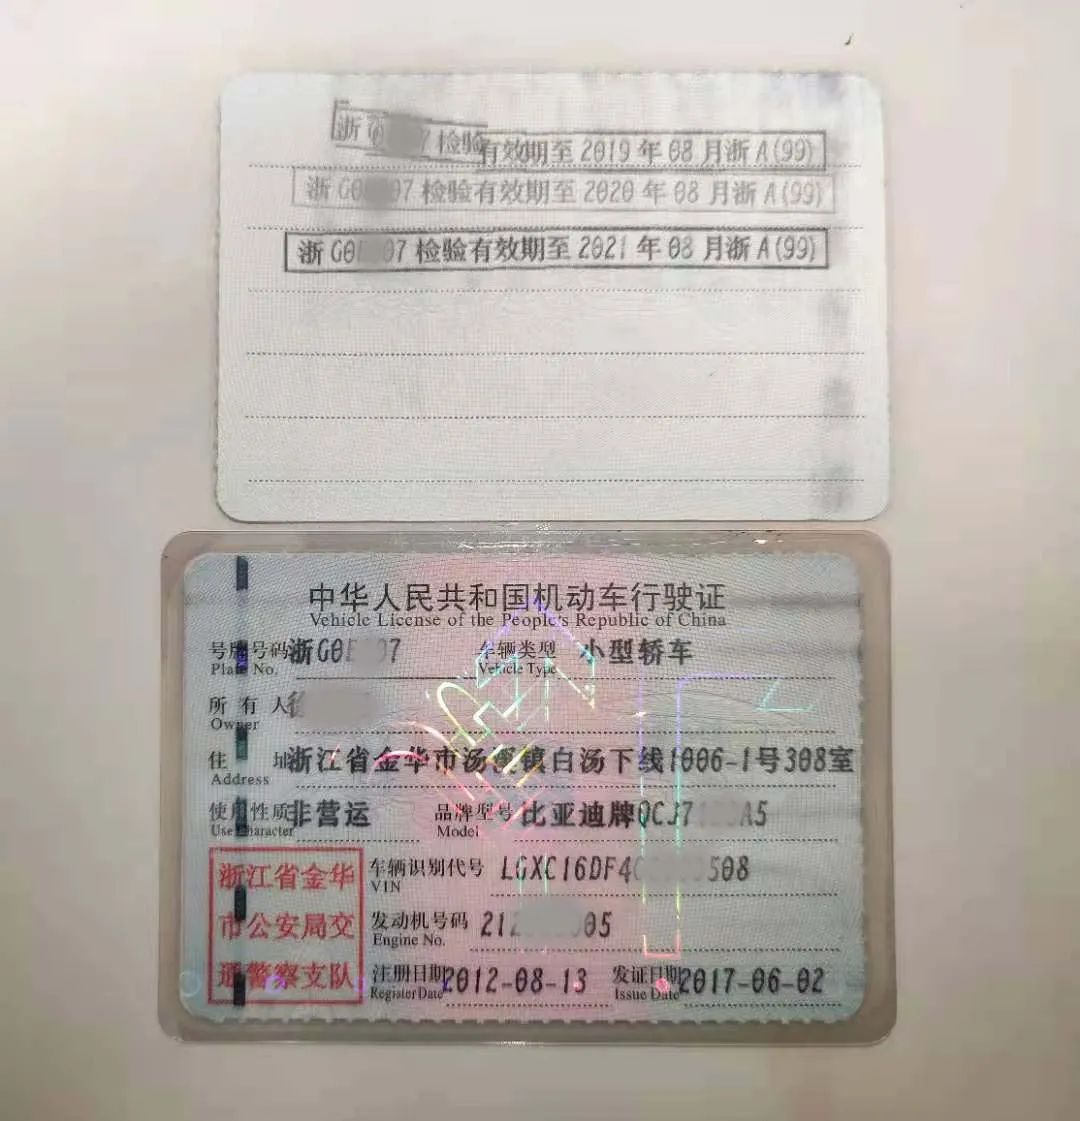 浙G 7 检验有效期至 2019 年 08 月浙 A (99)
浙 G0 07 检验有效期至 2020 年 08 月浙 A (99)
浙 G0 07 检验有效期至 2021 年 08 月浙 A (99)
中华人民共和国机动车行驶证
Vehicle License of the People's Republic of China
号牌号码 浙G0 07 车辆类型 小型轿车
Plate No. Vehicle Type
所有人 徐
Owner
住址 浙江省金华市汤溪镇白汤下线1006-1号308室
Address
使用性质 非营运 品牌型号 比亚迪牌QCJ7 A5
Use Character Model
浙江省金华
市公安局交
通警察支队
车辆识别代号 LGXC16DF4 508
VIN
发动机号码 212 05
Engine No.
注册日期 2012-08-13 发证日期 2017-06-02
Register Date Issue Date